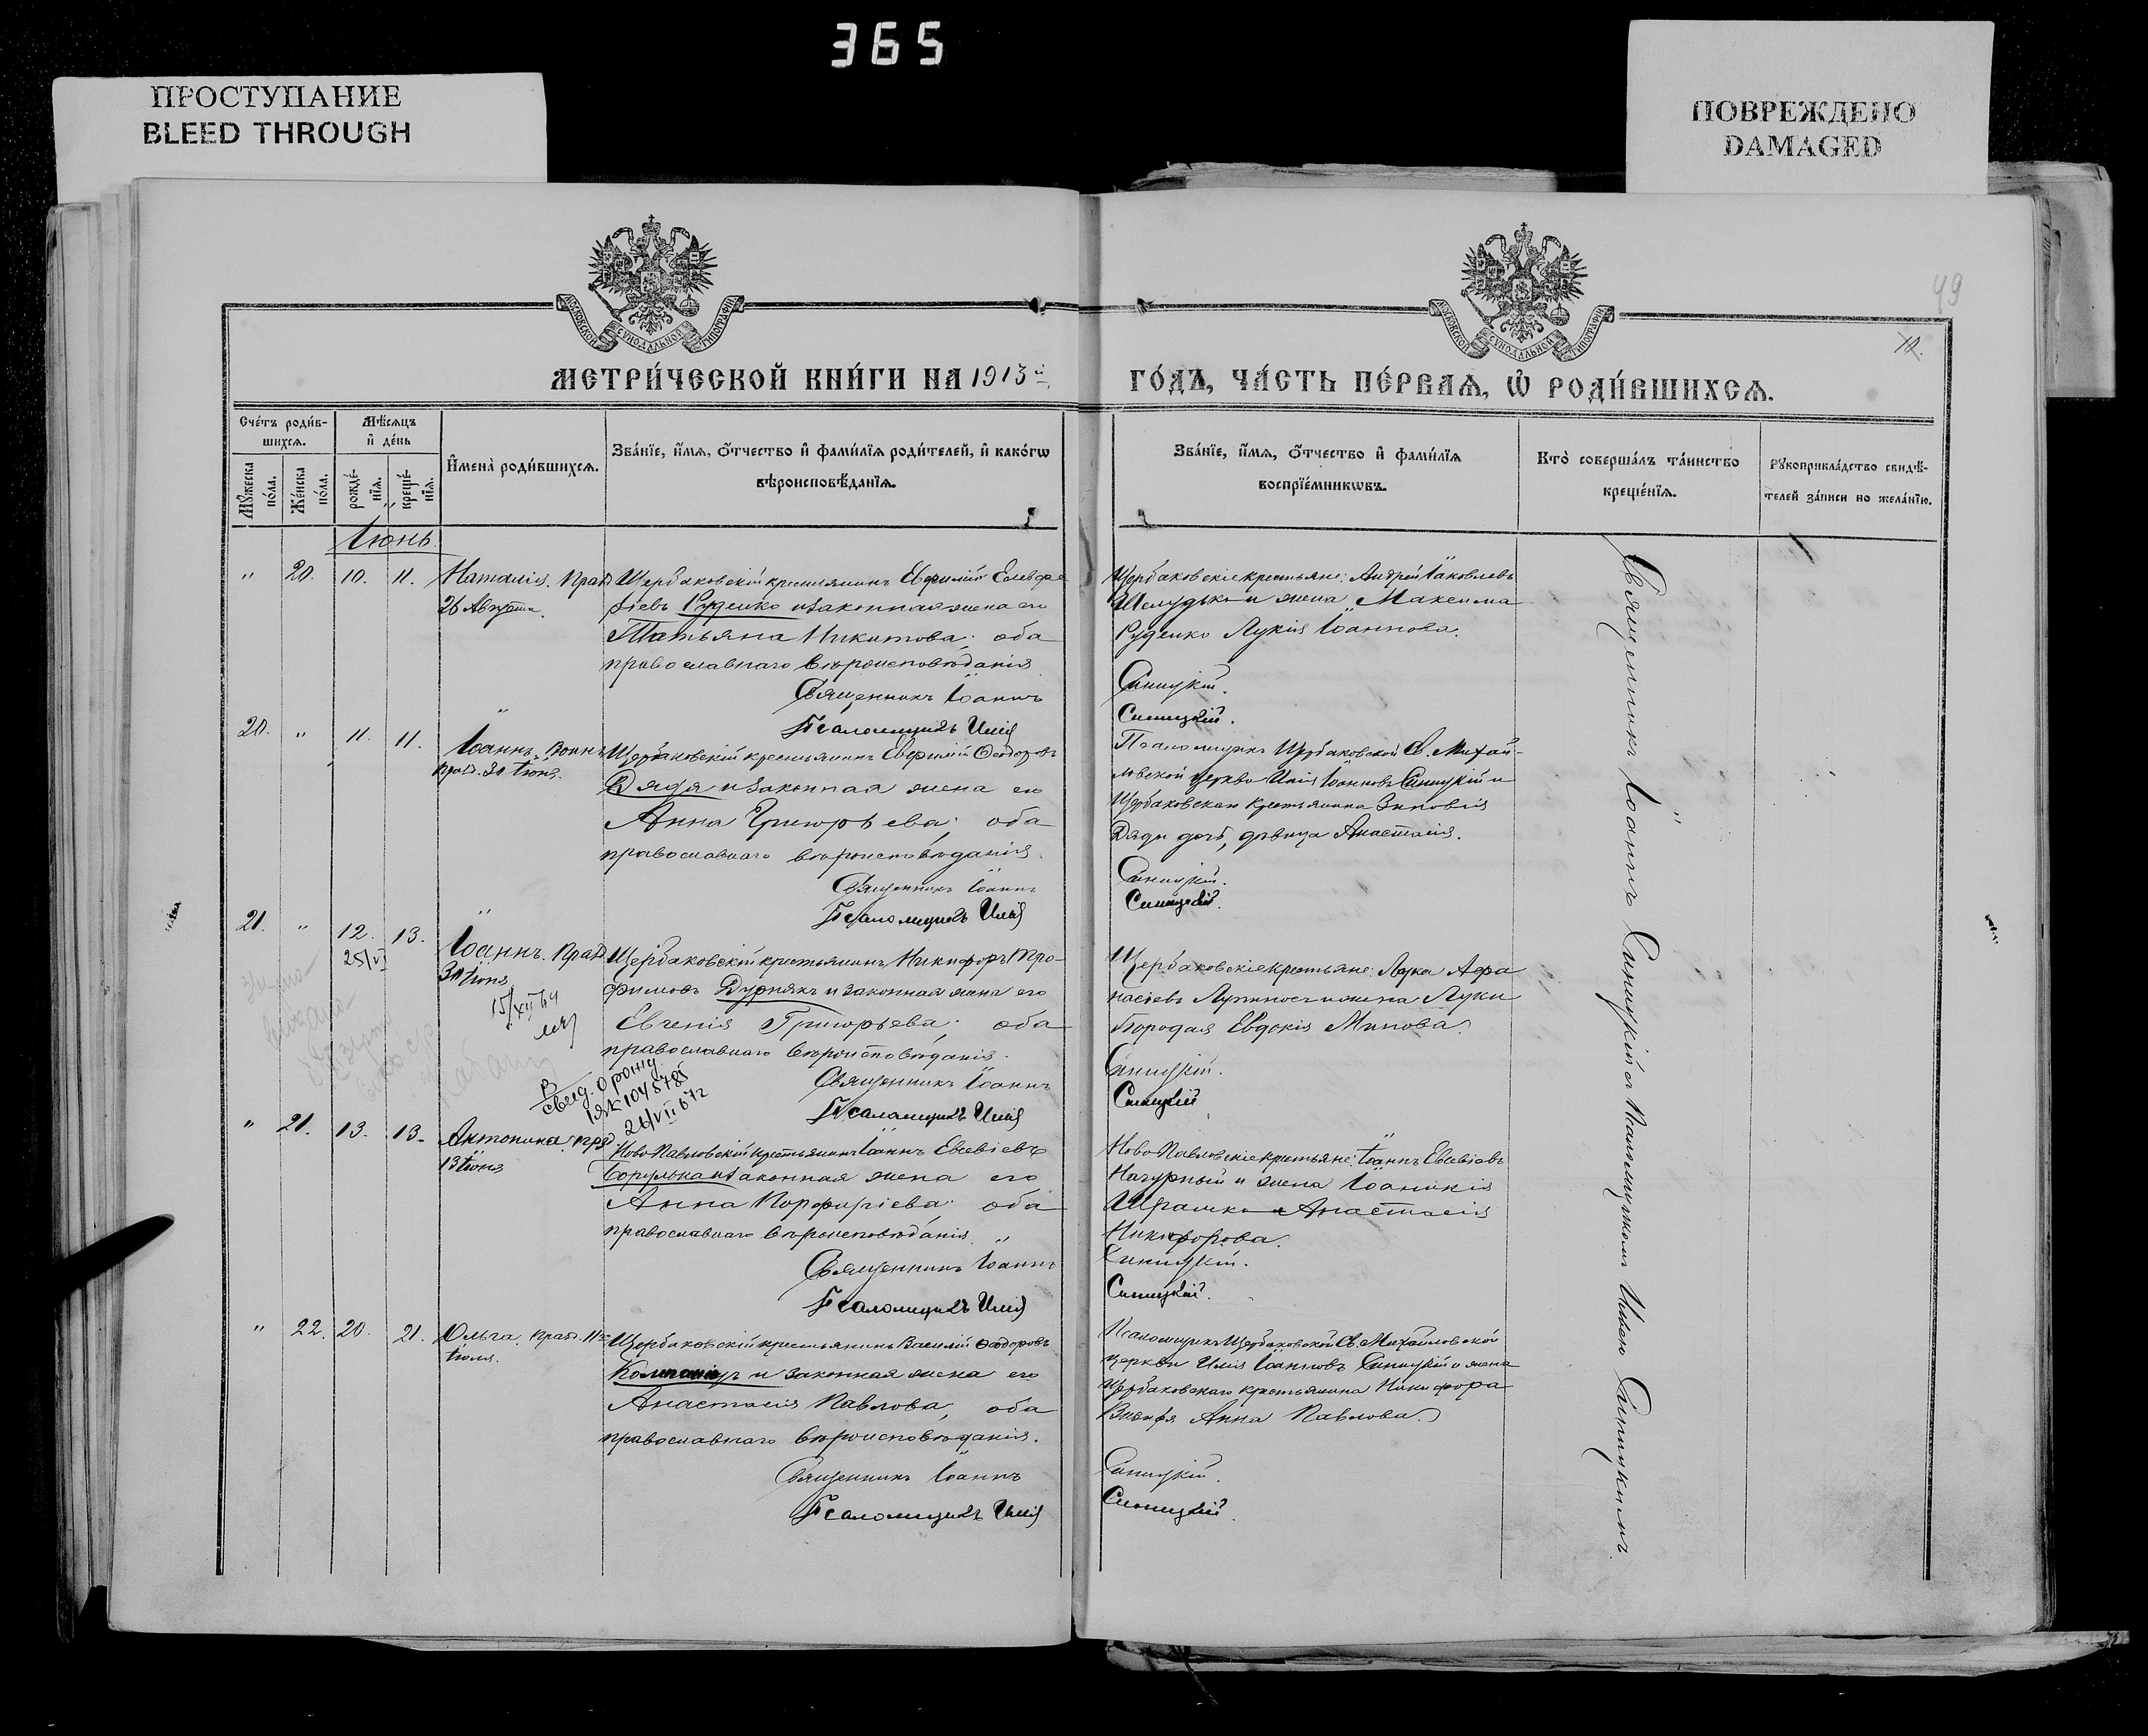 365
ПРОСТУПАНИЕ
BLEED THROUGH
ПОВРЕЖДЕНО
DAMAGED
49
МОСКОВСКОЙ СУНОДАЛЬНОЙ ТИПОГРАФІИ
МОСКОВСКОЙ СУНОДАЛЬНОЙ ТИПОГРАФІИ
МЕТРИ́ЧЕСКОЙ КНИ́ГИ НА 1913й
ГО́ДЪ, ЧА́СТЬ ПЕ́РВАѦ, Ѡ҆ РОДИ́ВШИХСѦ.
Сче́тъ роди́в-
шихсѧ.
Мѣ́сѧцъ
и҆ де́нь
Мꙋ́жеска
по́ла.
Же́нска
по́ла.
рожде́-
нїѧ.
креще́-
нїѧ.
И҆мена̀ роди́вшихсѧ.
Зва́нїе, и҆́мѧ, ѻ҆́тчество и҆ фами́лїѧ роди́телей, и҆ како́гѡ
вѣроисповѣ́данїѧ.
Зва́нїе, и҆́мѧ, ѻ҆́тчество и҆ фами́лїѧ
воспрїе́мникѡвъ.
Кто̀ соверша́лъ та́инство
креще́нїѧ.
Рꙋкоприкла́дство свидѣ́-
телей за́писи по жела́нїю.
Іюнь.
" 20. 10. 11. Наталія. Празд
26 Августа.
Щербаковскій крестьянинъ Евфимій Елевфе
ріевъ Руденко и законная жена его
Татьяна Никитова; оба
православнаго вѣроисповѣданія
Священникъ Іоаннъ
Псаломщикъ Илія
Щербаковскіе крестьяне: Андрей Іаковлевъ
Шелудько и жена Максима
Руденко Лукія Іоаннова.
Синицкій.
Синицкій.
20. " 11. 11. Іоаннъ-Воинъ
празд. 30 Іюля.
Щербаковскій крестьянинъ Евфимій Ѳеодоровъ
Дядя и законная жена его
Анна Григорьева; оба
православнаго вѣроисповѣданія.
Священникъ Іоаннъ
Псаломщикъ Илія
Псаломщикъ Щербаковской Св. Михай-
ловской церкви Илія Іоанновъ Синицкій и
Щербаковскаго крестьянина Зиновія
Дяди дочь, дѣвица Анастасія.
Синицкій.
Синицкій.
21. " 12. 13. Іоаннъ. Празд
25/VI
15/XII 64
Щербаковскій крестьянинъ Никифоръ Тро-
фимовъ Дурнякъ и законная жена его
Евгенія Григорьева; оба
православнаго вѣроисповѣданія.
Священникъ Іоаннъ
Псаломщикъ Илія
свид. о рожд.
1ЯК 1048785
26/VII 67г
Щербаковскіе крестьяне: Лука Афа
насіевъ и жена Луки
Бородая Евдокія Минова.
Синицкій.
Синицкій
" 21. 13. 13. Антонина. Празд.
13 Іюня
Ново-Павловскій крестьянинъ Іоаннъ Евсевіевъ
и законная жена его
Анна Порфиріева; оба
православнаго вѣроисповѣданія.
Священникъ Іоаннъ
Псаломщикъ Илія
Ново-Павловскіе крестьяне: Іоаннъ Евсевіевъ
Нагурный и жена Іоаникія
Анастасія
Никифорова.
Синицкій.
Синицкій.
" 22. 20. 21. Ольга. празд. 11го
Іюля.
Щербаковскій крестьянинъ Василій Ѳеодоровъ
и законная жена его
Анастасія Павлова; оба
православнаго вѣроисповѣданія.
Священникъ Іоаннъ
Псаломщикъ Илія
Псаломщикъ Щербаковской Св. Михайловской
церкви Илія Іоанновъ Синицкій и жена
Щербаковскаго крестьянина Никифора
Анна Павлова.
Синицкій.
Синицкій.
Священникъ Іоаннъ Синицкій съ Псаломщикомъ Иліею Синицкимъ.